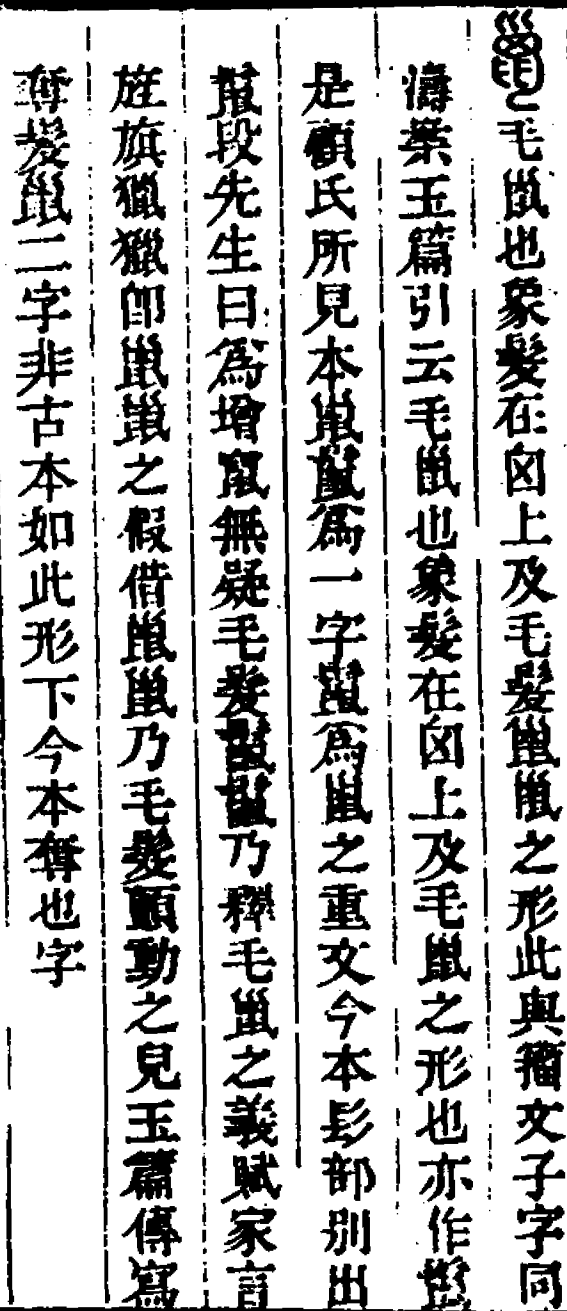 毛巤也象髮在囟上及毛髮巤巤之形此與籒文子字同
濤案玉篇引云毛巤也象髮在囟上及毛巤之形也亦作
是顧氏所見本巤鬣爲一字爲巤之重文今本髟部別出
鬣段先生曰爲增竄無疑毛髮鬣鬣乃釋毛巤之義賦家言
旌旗獵獵卽巤巤之假借巤巤乃毛髮顫動之皃玉篇傳寫
奪髮巤二字非古本如此形下今本奪也字